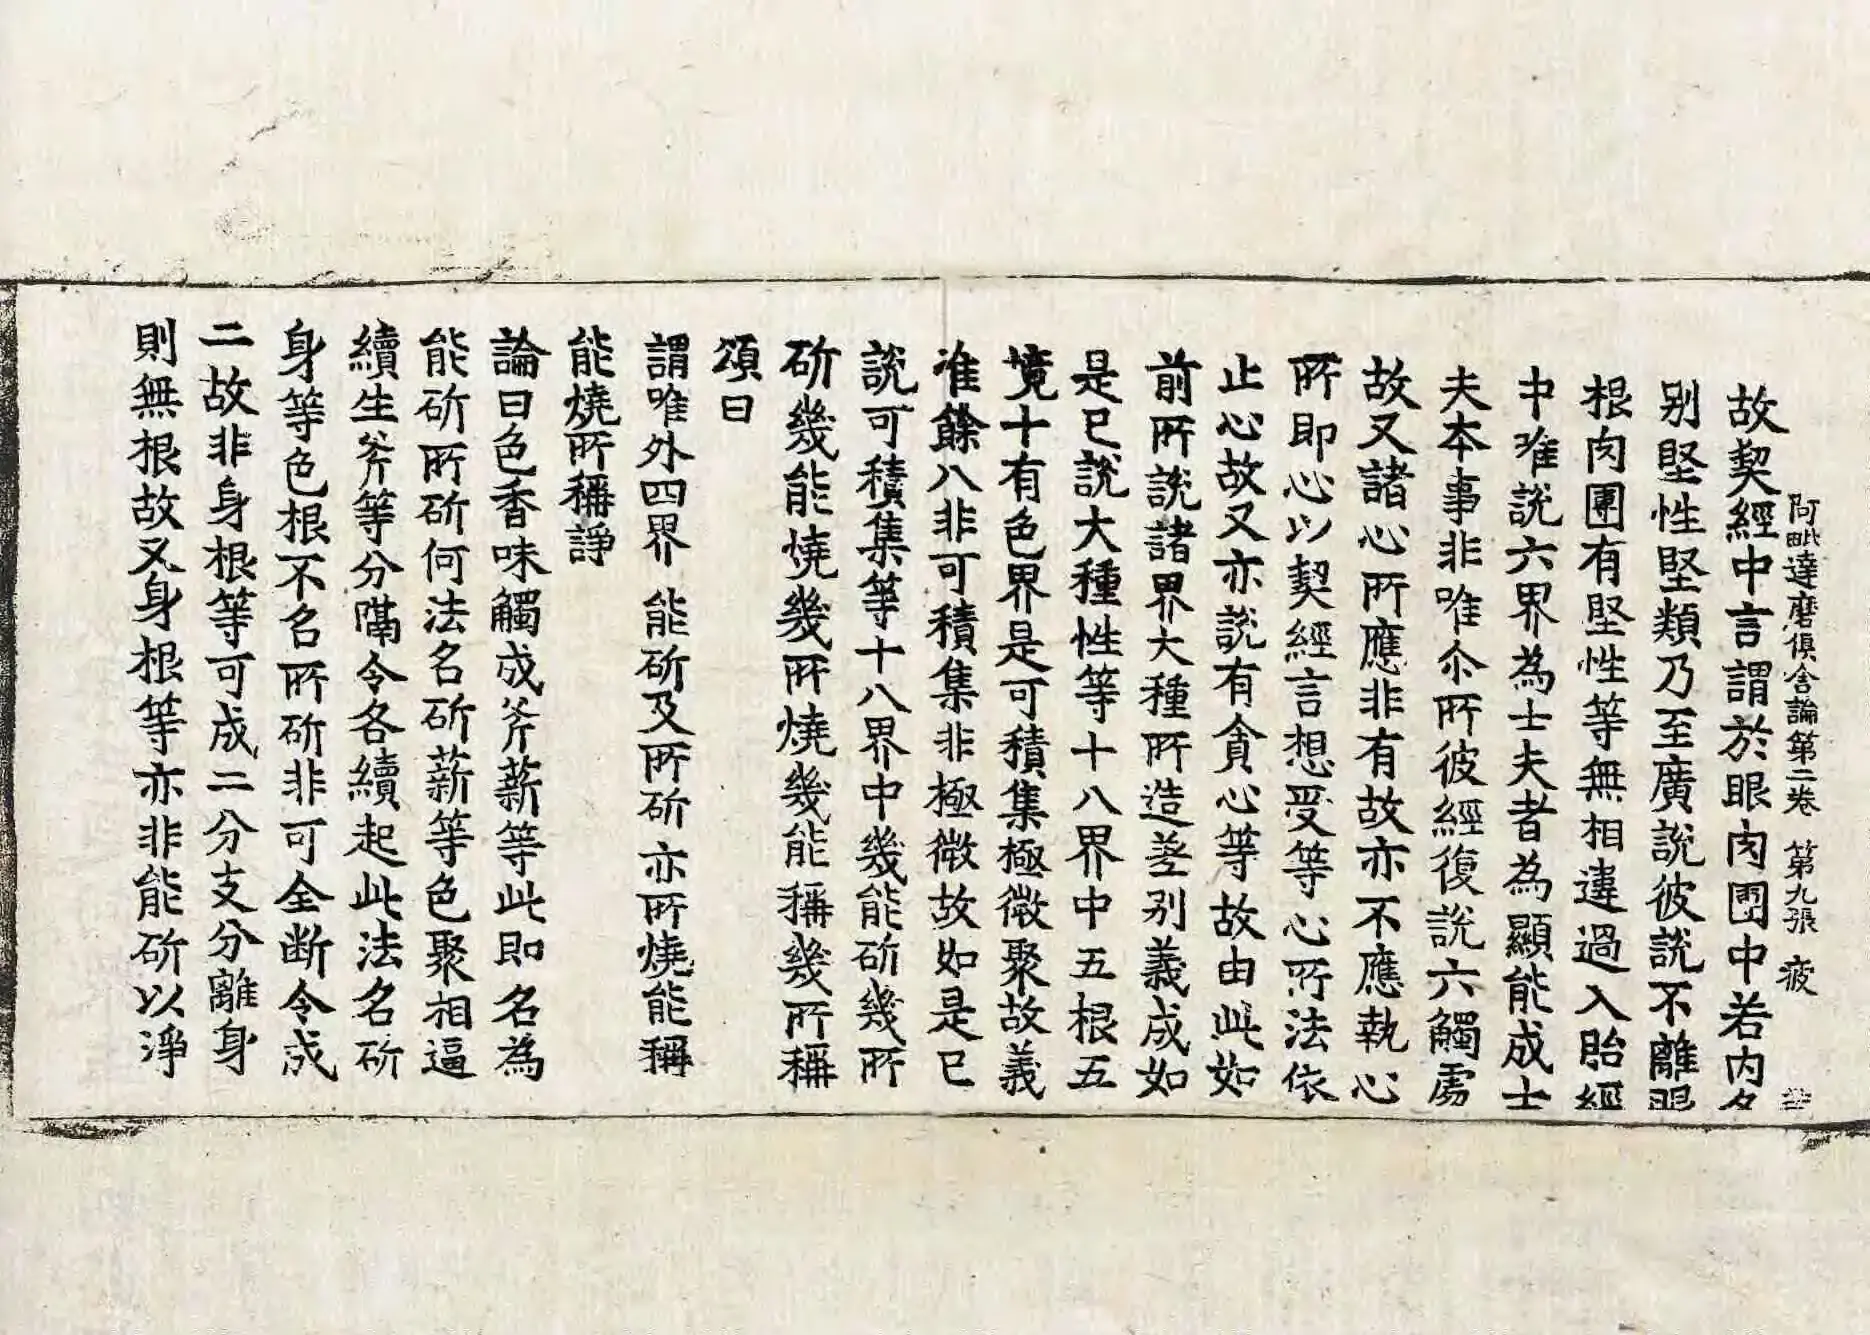 阿毗達磨俱舍論第二卷　第九張　疲
故契經中言謂於眼肉團中若内各
别堅性堅類乃至廣說彼說不離眼
根肉團有堅性等無相違過入胎經
中唯說六界為士夫者為顯能成士
夫本事非唯尒所彼經復說六觸處
故又諸心所應非有故亦不應執心
所即心以契經言想受等心所法依
止心故又亦說有貪心等故由此如
前所說諸界大種所造差别義成如
是已說大種性等十八界中五根五
境十有色界是可積集極微聚故義
准餘八非可積集非極微故如是已
說可積集等十八界中幾能斫幾所
斫幾能燒幾所燒幾能稱幾所稱
頌曰
謂唯外四界　能斫及所斫　亦所燒能稱
能燒所稱諍
論曰色香味觸成斧薪等此即名為
能斫所斫何法名斫薪等色聚相逼
續生斧等分隔令各續起此法名斫
身等色根不名所斫非可全断令成
二故非身根等可成二分支分離身
則無根故又身根等亦非能斫以淨